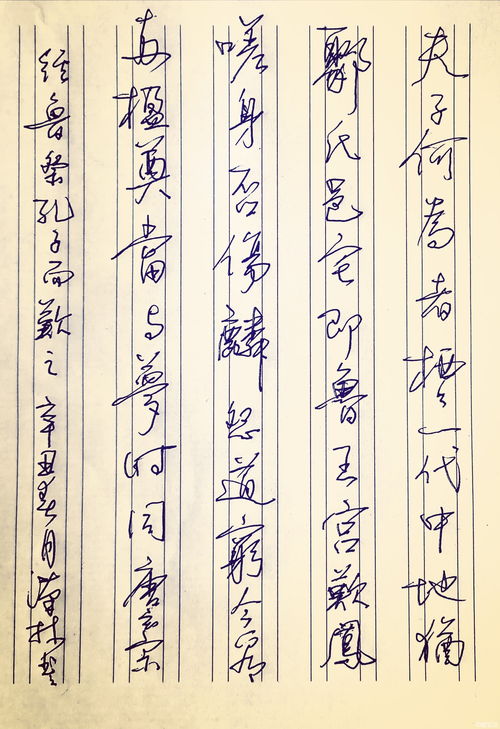 夫子何為者栖々一代中地猶
鄹氏邑宅即魯王宮歎鳳
嗟身否傷麟怨道窮今看
兩楹奠當与夢时同唐玄宗
經魯祭孔子而歎之辛丑春月